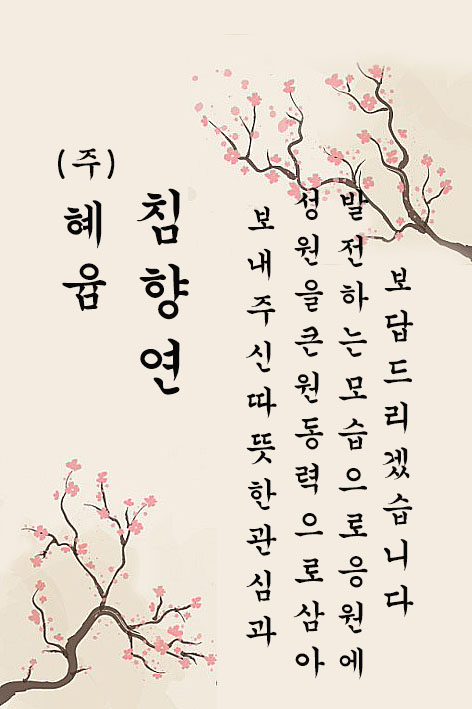 (주)혜윰
침향연
보내주신따뜻한관심과
성원을큰원동력으로삼아
발전하는모습으로응원에
보답드리겠습니다